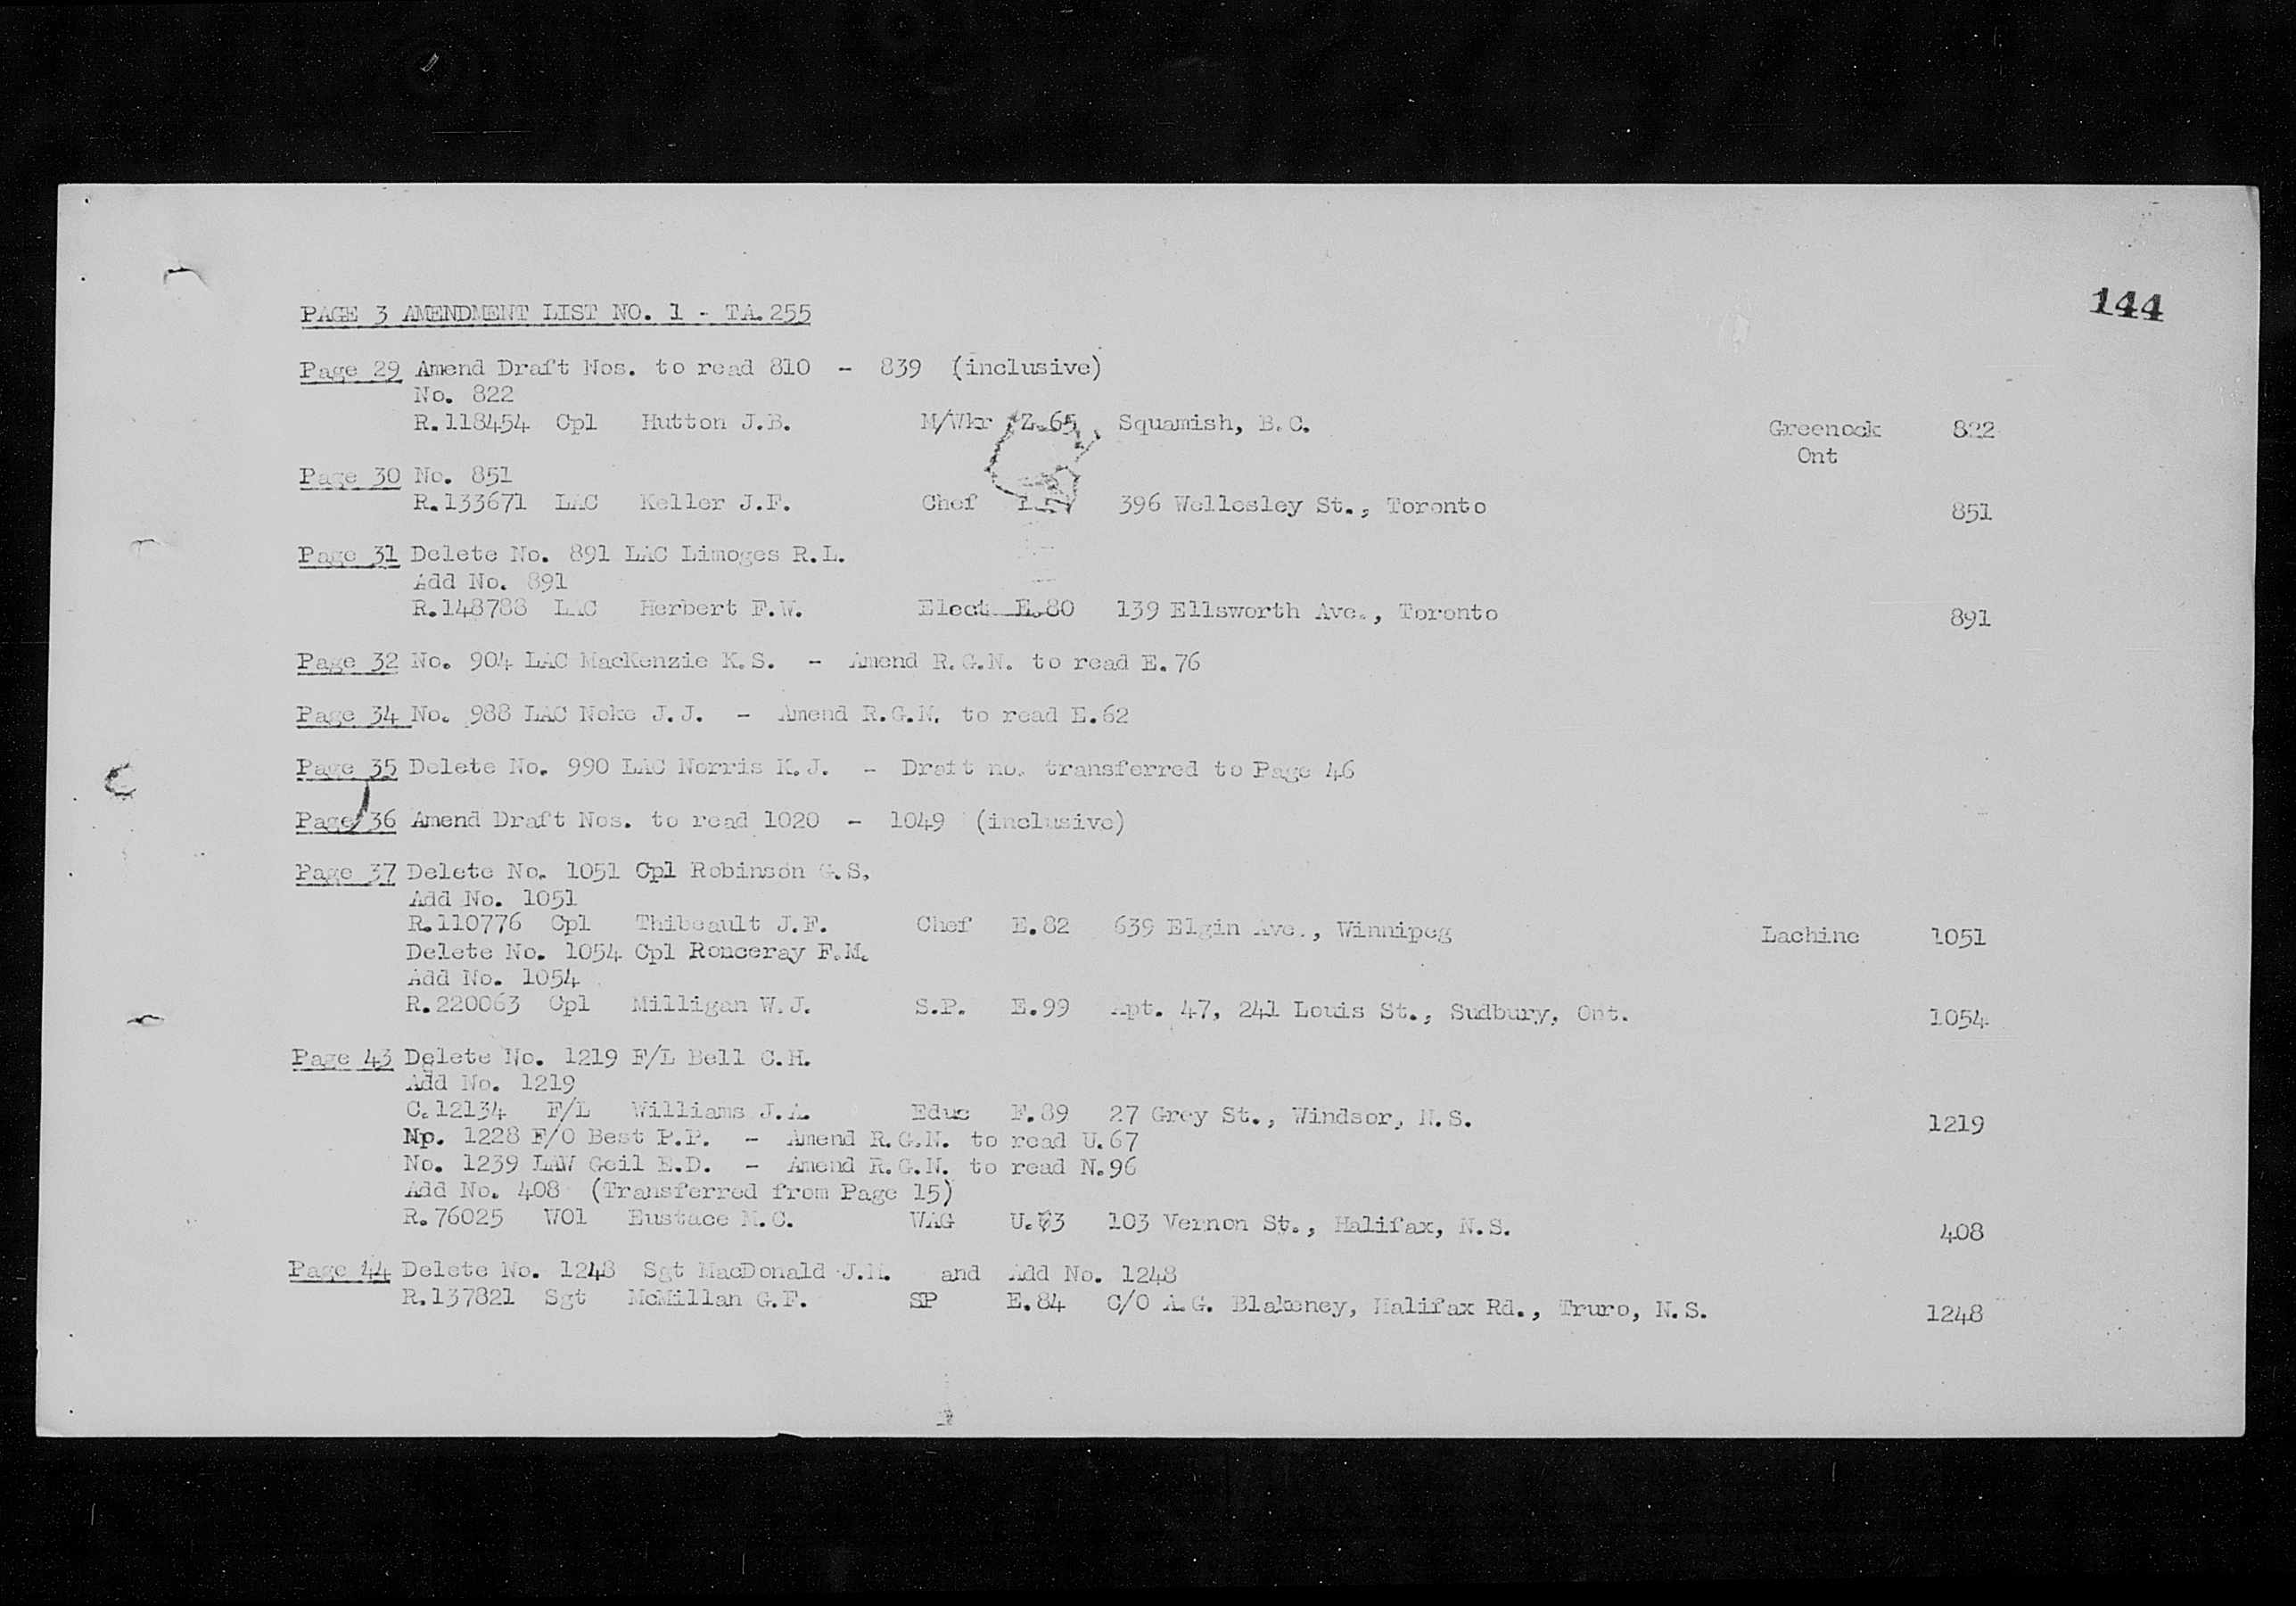 144
PAGE 3 AMENDMENT LIST NO. 1 - TA.255
Page 29 Amend Draft Nos. to read 810 - 839 (inclusive)
No. 822
R.118454 Cpl Hutton J.B. M/Wkr Z.65 Squamish, B.C. Greenock 822
Ont
Page 30 No. 851
R.133671 LAC Keller J.F. Chef 396 Wellesley St., Toronto 851
Page 31 Delete No. 891 LAC Limoges R.L.
Add No. 891
R.148788 LAC Herbert F.W. Elect E.80 139 Ellsworth Ave., Toronto 891
Page 32 No. 904 LAC MacKenzie K.S. - Amend R.G.N. to read E.76
Page 34 No. 988 LAC Noke J.J. - Amend R.G.N. to read E.62
Page 35 Delete No. 990 LAC Norris K.J. - Draft no. transferred to Page 46
Page 36 Amend Draft Nos. to read 1020 - 1049 (inclusive)
Page 37 Delete No. 1051 Cpl Robinson G.S.
Add No. 1051
R.110776 Cpl Thibeault J.F. Chef E.82 639 Elgin Ave., Winnipeg Lachine 1051
Delete No. 1054 Cpl Ronceray F.M.
Add No. 1054
R.220063 Cpl Milligan W.J. S.P. E.99 Apt. 47, 241 Louis St., Sudbury, Ont. 1054
Page 43 Delete No. 1219 F/L Bell C.H.
Add No. 1219
C.12134 F/L Williams J.A. Educ F.89 27 Grey St., Windsor, N.S. 1219
Np. 1228 F/O Best P.P. - Amend R.G.N. to read U.67
No. 1239 LAW Geil E.D. - Amend R.G.N. to read N.96
Add No. 408 (Transferred from Page 15)
R.76025 WO1 Eustace M.C. WAG 103 Vernon St., Halifax, N.S. 408
Page 44 Delete No. 1248 Sgt MacDonald J.M. and Add No. 1248
R.137821 Sgt McMillan G.F. SP E.84 C/O A.G. Blakeney, Halifax Rd., Truro, N.S. 1248